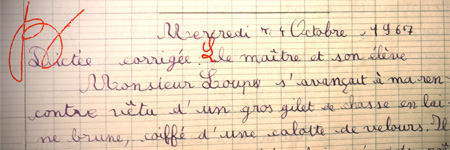 Mercredi 4 Octobre 1967
Dictée corrigée. Le maître et son élève
Monsieur Loups s'avançait à ma ren-
contre vêtu d'un gros gilet de chasse en lai-
ne brune, coiffé d'une calotte de velours. Il